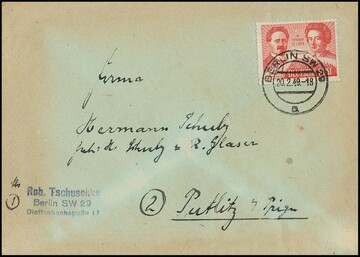 DEUTSCHE
BERLIN SW 29
20.2.49.-18
a
Firma
Hermann Schulz
Inh. H. Schulz u. R. Glaser
Rob. Tschuschke
Berlin SW 29
Dieffenbachstraße 17
1
2 Putlitz / Prign